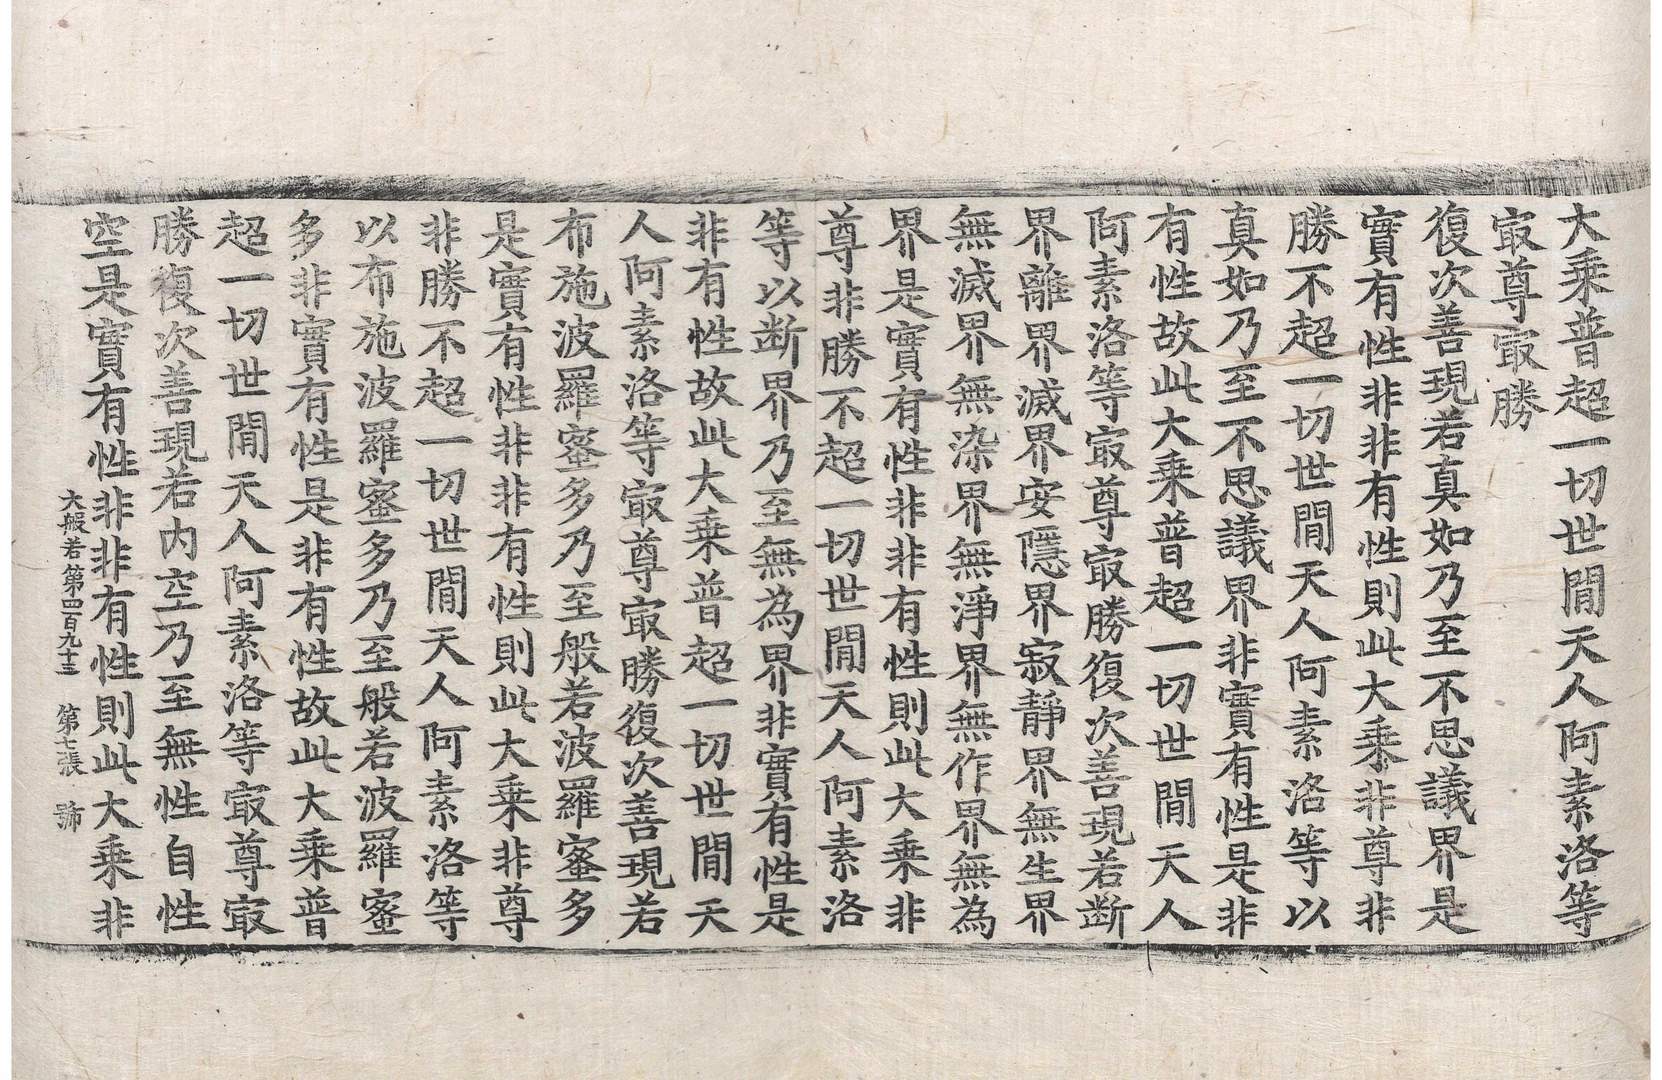 大乘普超一切世閒天人阿素洛等
㝡尊㝡勝
復次善現若真如乃至不思議界是
實有性非非有性則此大乘非尊非
勝不超一切世閒天人阿素洛等以
真如乃至不思議界非實有性是非
有性故此大乘普超一切世閒天人
阿素洛等㝡尊㝡勝復次善現若断
界離界滅界安隱界寂靜界無生界
無滅界無染界無淨界無作界無為
界是實有性非非有性則此大乘非
尊非勝不超一切世閒天人阿素洛
等以断界乃至無為界非實有性是
非有性故此大乘普超一切世閒天
人阿素洛等㝡尊㝡勝復次善現若
布施波羅蜜多乃至般若波羅蜜多
是實有性非非有性則此大乘非尊
非勝不超一切世閒天人阿素洛等
以布施波羅蜜多乃至般若波羅蜜
多非實有性是非有性故此大乘普
超一切世閒天人阿素洛等㝡尊㝡
勝復次善現若内空乃至無性自性
空是實有性非非有性則此大乘非
大般若第四百九十三 第七張 號